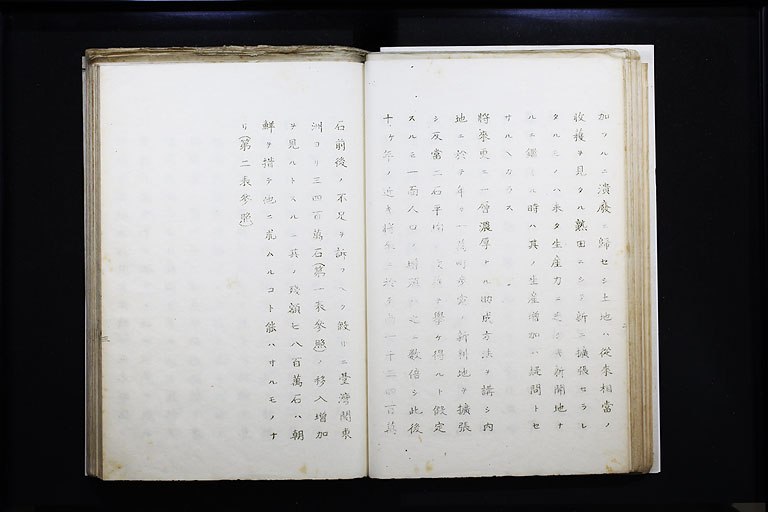 加フルニ潰廢ニ歸セシ土地ハ從来相當ノ
收穫ヲ見タル熟田ニシテ新ニ擴張セラレ
タルモノハ未タ生産力ニ乏シキ新開地ナ
ルニ鑑ミル時ハ其ノ生産増加ハ疑問トセ
サルヘカラス
將來更ニ一層濃厚ナル助成方法ヲ講シ内
地ニ於テ年々一萬町歩宛ノ新開地ヲ擴張
シ反當二石平均ノ收穫ヲ擧ケ得ルト假定
スルモ一面人口ノ増殖ハ之ニ數倍シ此後
十ケ年ノ近キ將來ニ於テ尚一千三四百萬
石前後ノ不足ヲ訴フヘク假リニ臺灣関東
洲ヨリ三四百萬石(第一表參照)ノ移入増加
ヲ見ルトスルニ其ノ殘額七八百萬石ハ朝
鮮ヲ措テ他ニ求ムルコト能ハサルモノナ
リ(第二表參照)
二
三